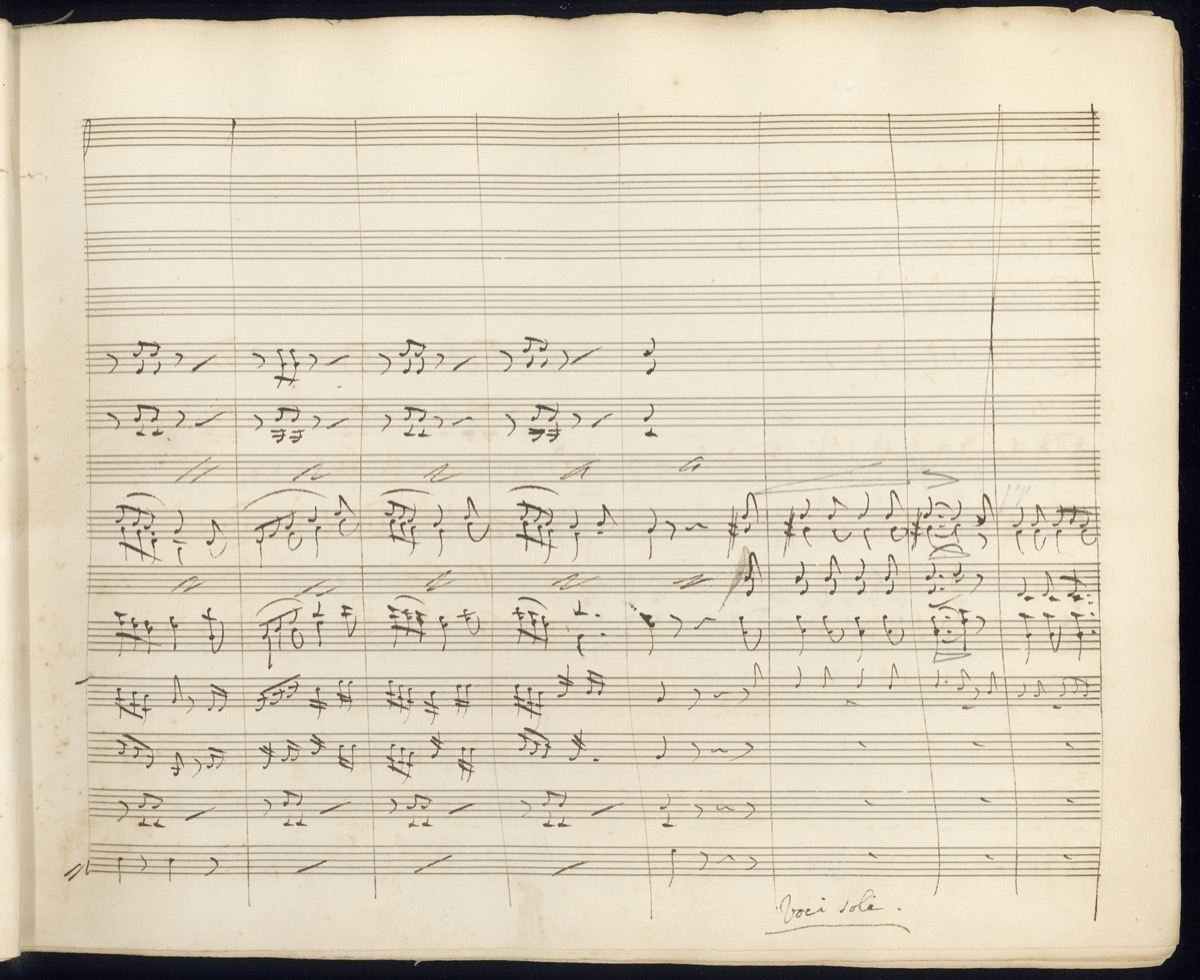 Voci sole.